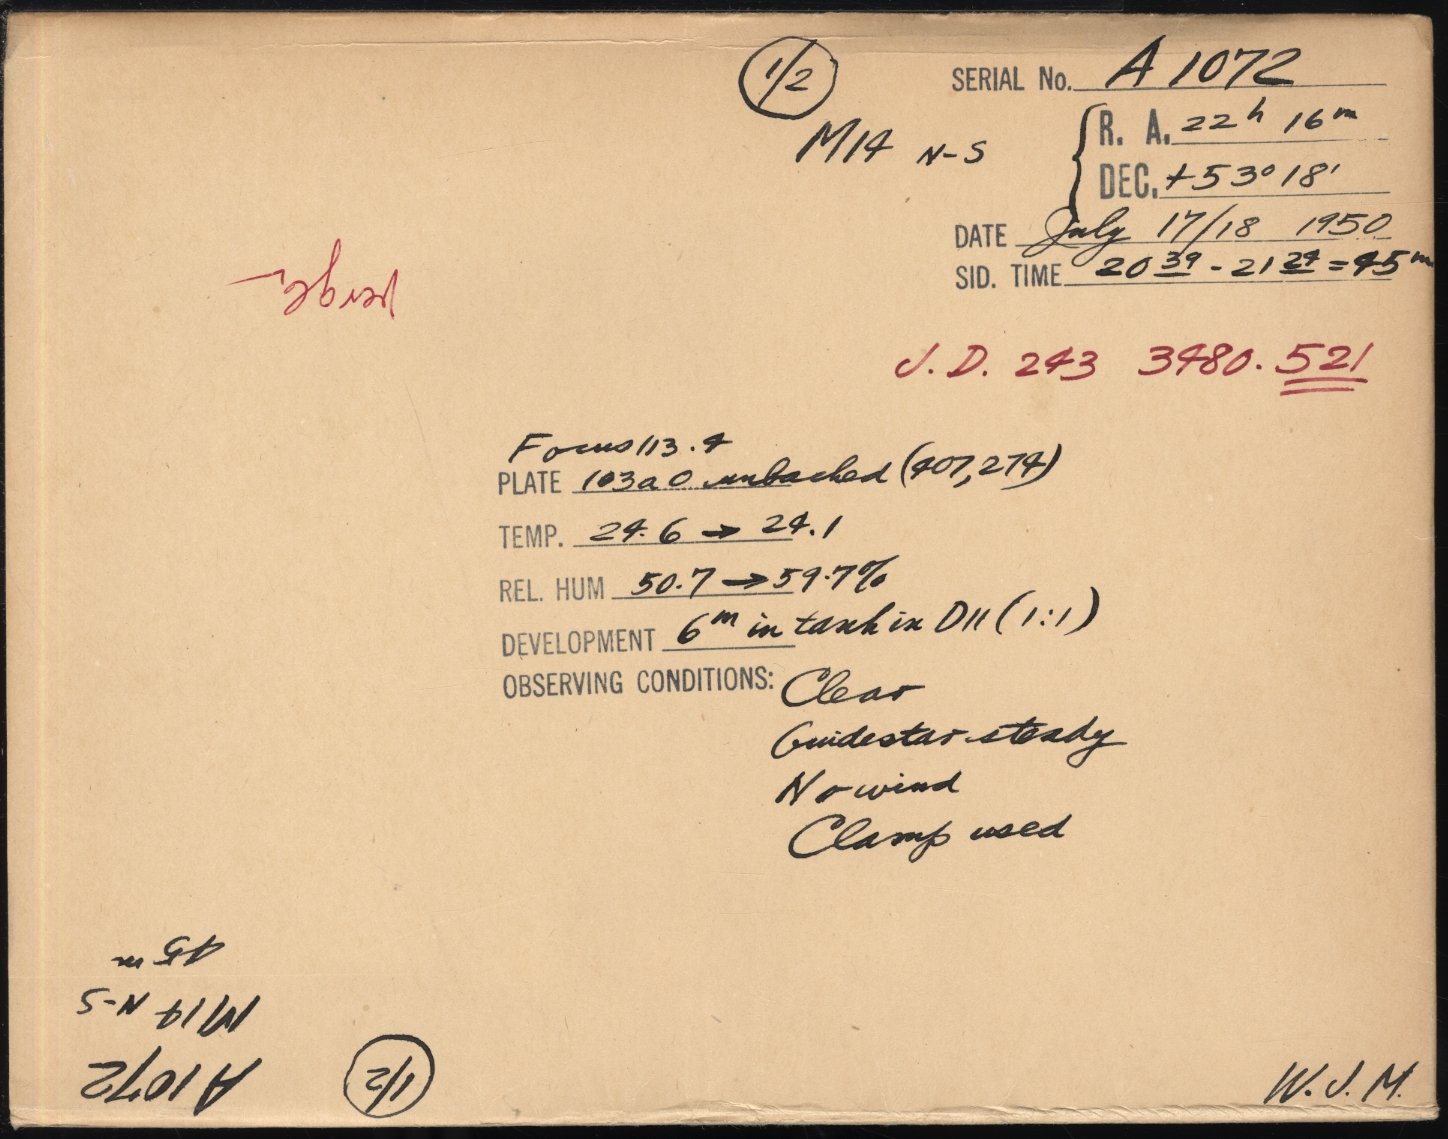 1/2
SERIAL No. A 1072
M14 N-S
R. A. 22h 16m
DEC. +53° 18'
DATE July 17/18 1950
SID. TIME 20 39 - 21 24 = 45m
J. D. 243 3480.521
Focus 113.4
PLATE 103a O unbacked (407,274)
TEMP. 24.6 → 24.1
REL. HUM 50.7 → 59.7%
DEVELOPMENT 6m in tank in D11 (1:1)
OBSERVING CONDITIONS: Clear
Guidestar steady
No wind
Clamp used
W. J. M.
1/2
A1072
M14 N-S
45 m